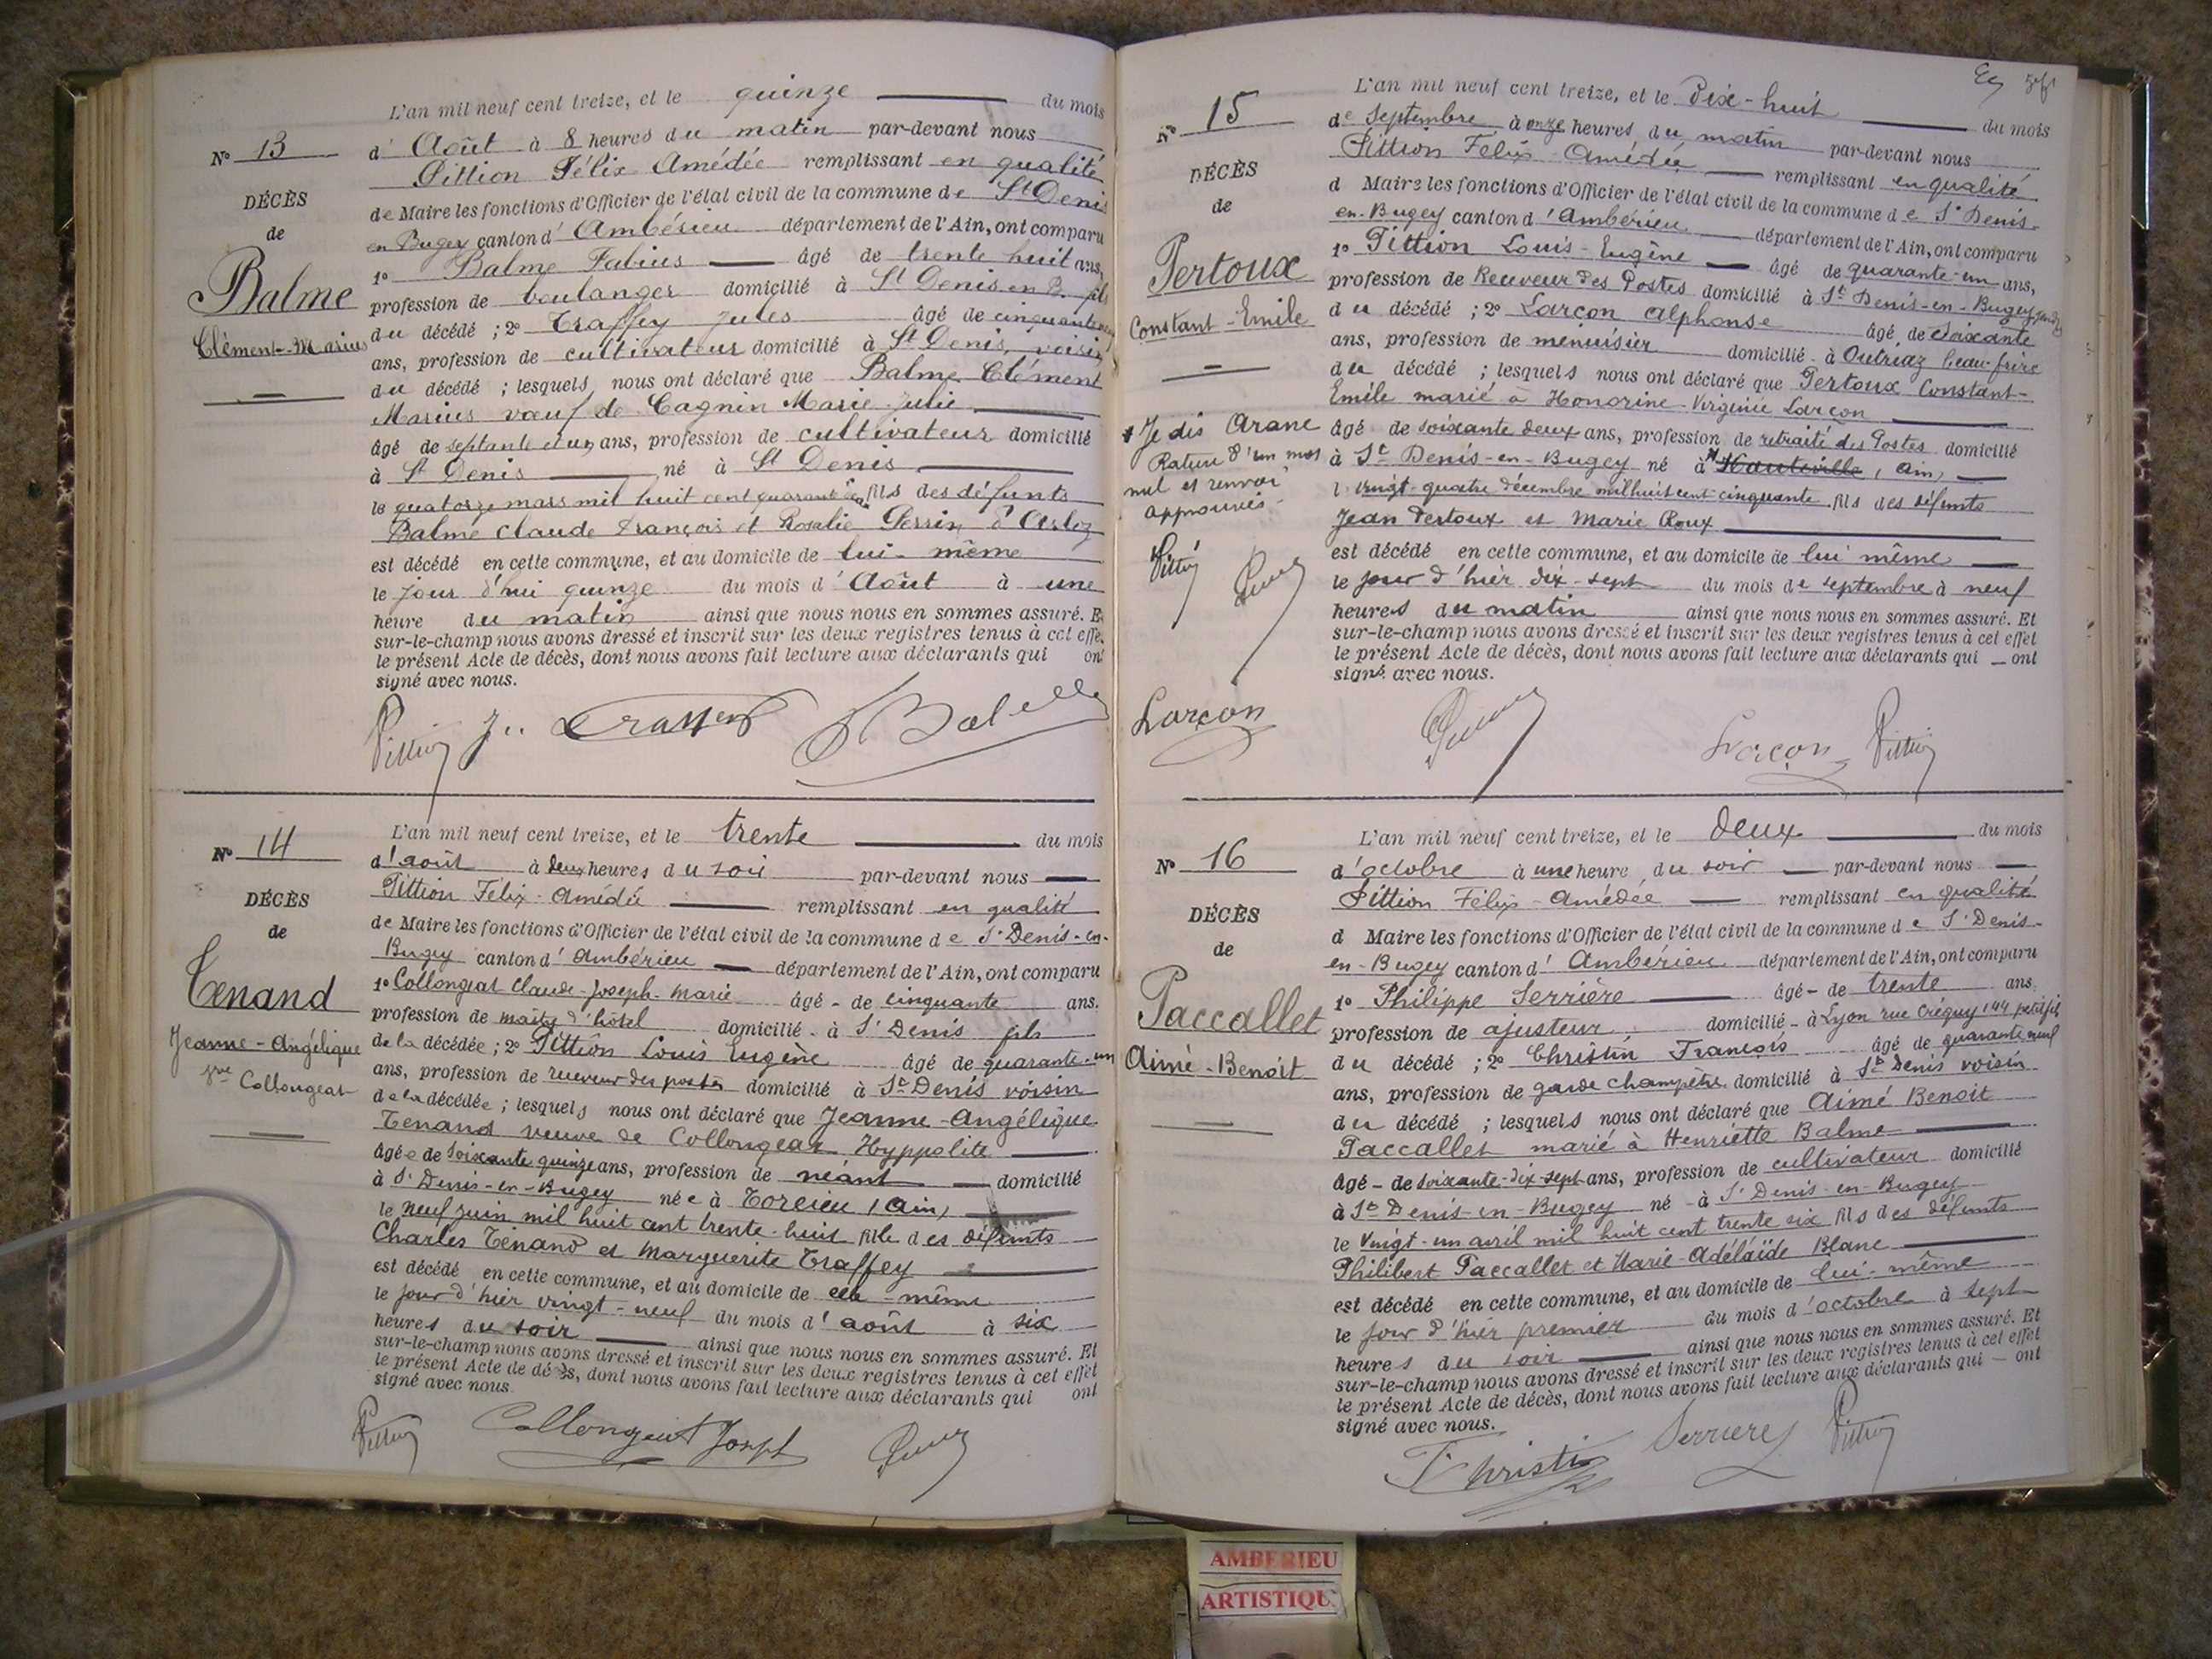 L'an mil neuf cent treize, et le quinze du mois
N° 13
d'Août à 8 heures du matin par-devant nous
Pittion Félix Amédée remplissant en qualité
DÉCÈS
de Maire les fonctions d'Officier de l'état civil de la commune de St Denis
de
en Bugey canton d'Ambérieu département de l'Ain, ont comparu
1° Balme Fabius âgé de trente huit ans,
Balme
profession de boulanger domicilié à St Denis en B. fils
Clément-Marius
du décédé ; 2° Traffey Jules âgé de cinquante
ans, profession de cultivateur domicilié à St Denis, voisin
du décédé ; lesquels nous ont déclaré que Balme Clément
Marius vœuf de Cagnin Marie Julie
âgé de septante et un ans, profession de cultivateur domicilié
à St Denis né à St Denis
le quatorze mars mil huit cent quarante fils des défunts
Balme Claude François et Rosalie Perrin d'Arloz
est décédé en cette commune, et au domicile de lui-même
le jour d'hui quinze du mois d'Août à une
heure du matin ainsi que nous nous en sommes assuré. Et
sur-le-champ nous avons dressé et inscrit sur les deux registres tenus à cet effet
le présent Acte de décès, dont nous avons fait lecture aux déclarants qui ont
signé avec nous.
Pittion
L'an mil neuf cent treize, et le trente du mois
N° 14
d'août à deux heures du soir par-devant nous
Pittion Félix-Amédée remplissant en qualité
DÉCÈS
de Maire les fonctions d'Officier de l'état civil de la commune de St Denis-en-
de
Bugey canton d'Ambérieu département de l'Ain, ont comparu
Tenand
1° Collongeat Claude-Joseph-Marie âgé de cinquante ans.
profession de maître d'hôtel domicilié à St Denis fils
Jeanne-Angélique
de la décédée ; 2° Pittion Louis Eugène âgé de quarante-un
Vve Collongeat
ans, profession de receveur des postes domicilié à St Denis voisin
de la décédée ; lesquels nous ont déclaré que Jeanne-Angélique
Tenand veuve de Collongeat Hyppolite
âgée de soixante quinze ans, profession de néant domicilié
à St Denis-en-Bugey née à Torcieu (Ain)
le neuf juin mil huit cent trente-huit fille des défunts
Charles Tenand et Marguerite Traffey
est décédé en cette commune, et au domicile de elle-même
le jour d'hier vingt-neuf du mois d'août à six
heures du soir ainsi que nous nous en sommes assuré. Et
sur-le-champ nous avons dressé et inscrit sur les deux registres tenus à cet effet
le présent Acte de décès, dont nous avons fait lecture aux déclarants qui ont
signé avec nous.
Pittion Collongeat Joseph
L'an mil neuf cent treize, et le Dix-huit du mois
N° 15
de Septembre à onze heures du matin par-devant nous
Pittion Félix Amédée remplissant en qualité
DÉCÈS
d Maire les fonctions d'Officier de l'état civil de la commune de St Denis-
de
en-Bugey canton d'Ambérieu département de l'Ain, ont comparu
1° Pittion Louis-Eugène âgé de quarante-un ans,
Pertoux
profession de Receveur des Postes domicilié à St Denis-en-Bugey, gendre
Constant-Emile
du décédé ; 2° Larçon Alphonse âgé de soixante
ans, profession de menuisier domicilié à Outriaz beau-frère
du décédé ; lesquels nous ont déclaré que Pertoux Constant-
Emile marié à Honorine-Virginie Larçon
âgé de soixante deux ans, profession de retraité des Postes domicilié
à St Denis-en-Bugey né à Hauteville (Ain)
l vingt-quatre décembre mil huit cent cinquante fils des défunts
Jean Pertoux et Marie Roux
Je dis Arane
Rature d'un mot
nul et renvoi
approuvés.
est décédé en cette commune, et au domicile de lui même
le jour d'hier dix-sept du mois de septembre à neuf
heures du matin ainsi que nous nous en sommes assuré. Et
sur-le-champ nous avons dressé et inscrit sur les deux registres tenus à cet effet
le présent Acte de décès, dont nous avons fait lecture aux déclarants qui ont
signé avec nous.
Larçon
Larçon Pittion
L'an mil neuf cent treize, et le deux du mois
N° 16
d'octobre à une heure du soir par-devant nous
Pittion Félix-Amédée remplissant en qualité
DÉCÈS
d Maire les fonctions d'Officier de l'état civil de la commune de St Denis-
de
en-Bugey canton d'Ambérieu département de l'Ain, ont comparu
1° Philippe Serrière âgé de trente ans
Paccallet
profession de ajusteur domicilié à Lyon rue Créquy 144 petit fils
Aimé-Benoit
du décédé ; 2° Christin François âgé de quarante neuf
ans, profession de garde champêtre domicilié à St Denis voisin
du décédé ; lesquels nous ont déclaré que Aimé Benoit
Paccallet marié à Henriette Balme
âgé de soixante-dix-sept ans, profession de cultivateur domicilié
à St Denis-en-Bugey né à St Denis-en-Bugey
le vingt-un avril mil huit cent trente six fils des défunts
Philibert Paccallet et Marie-Adélaïde Blanc
est décédé en cette commune, et au domicile de lui-même
le jour d'hier premier du mois d'octobre à sept
heures du soir ainsi que nous nous en sommes assuré. Et
sur-le-champ nous avons dressé et inscrit sur les deux registres tenus à cet effet
le présent Acte de décès, dont nous avons fait lecture aux déclarants qui ont
signé avec nous.
Christin Serriere Pittion
AMBERIEU
ARTISTIQU